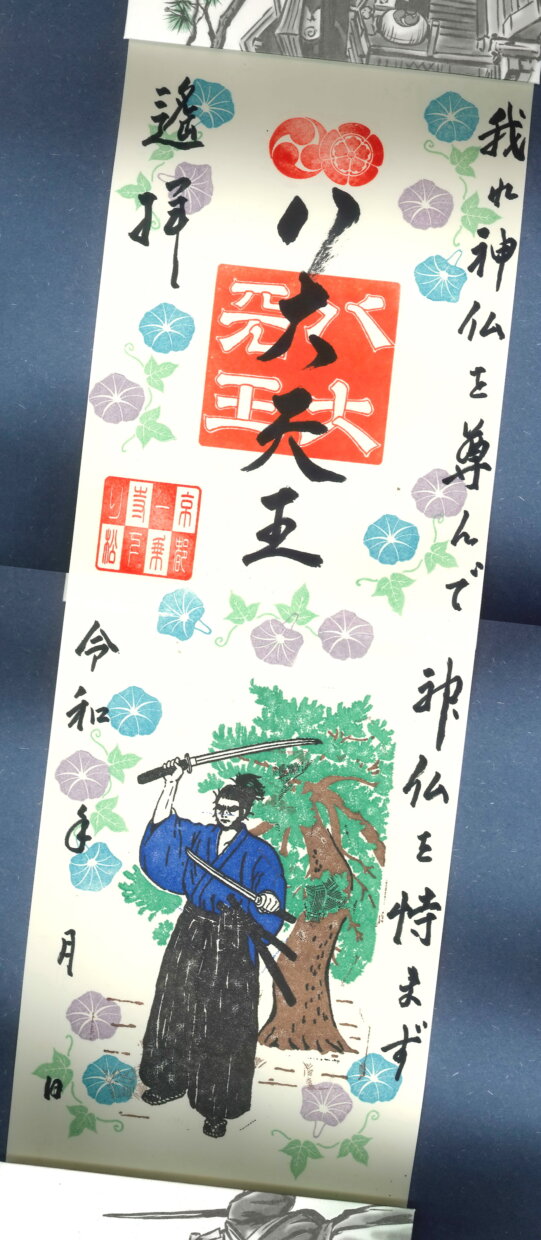 我れ神仏を尊んで
神仏を恃まず
八大天王
八大
天王
遙拝
京都
一乗
寺下
り松
令和 年 月 日